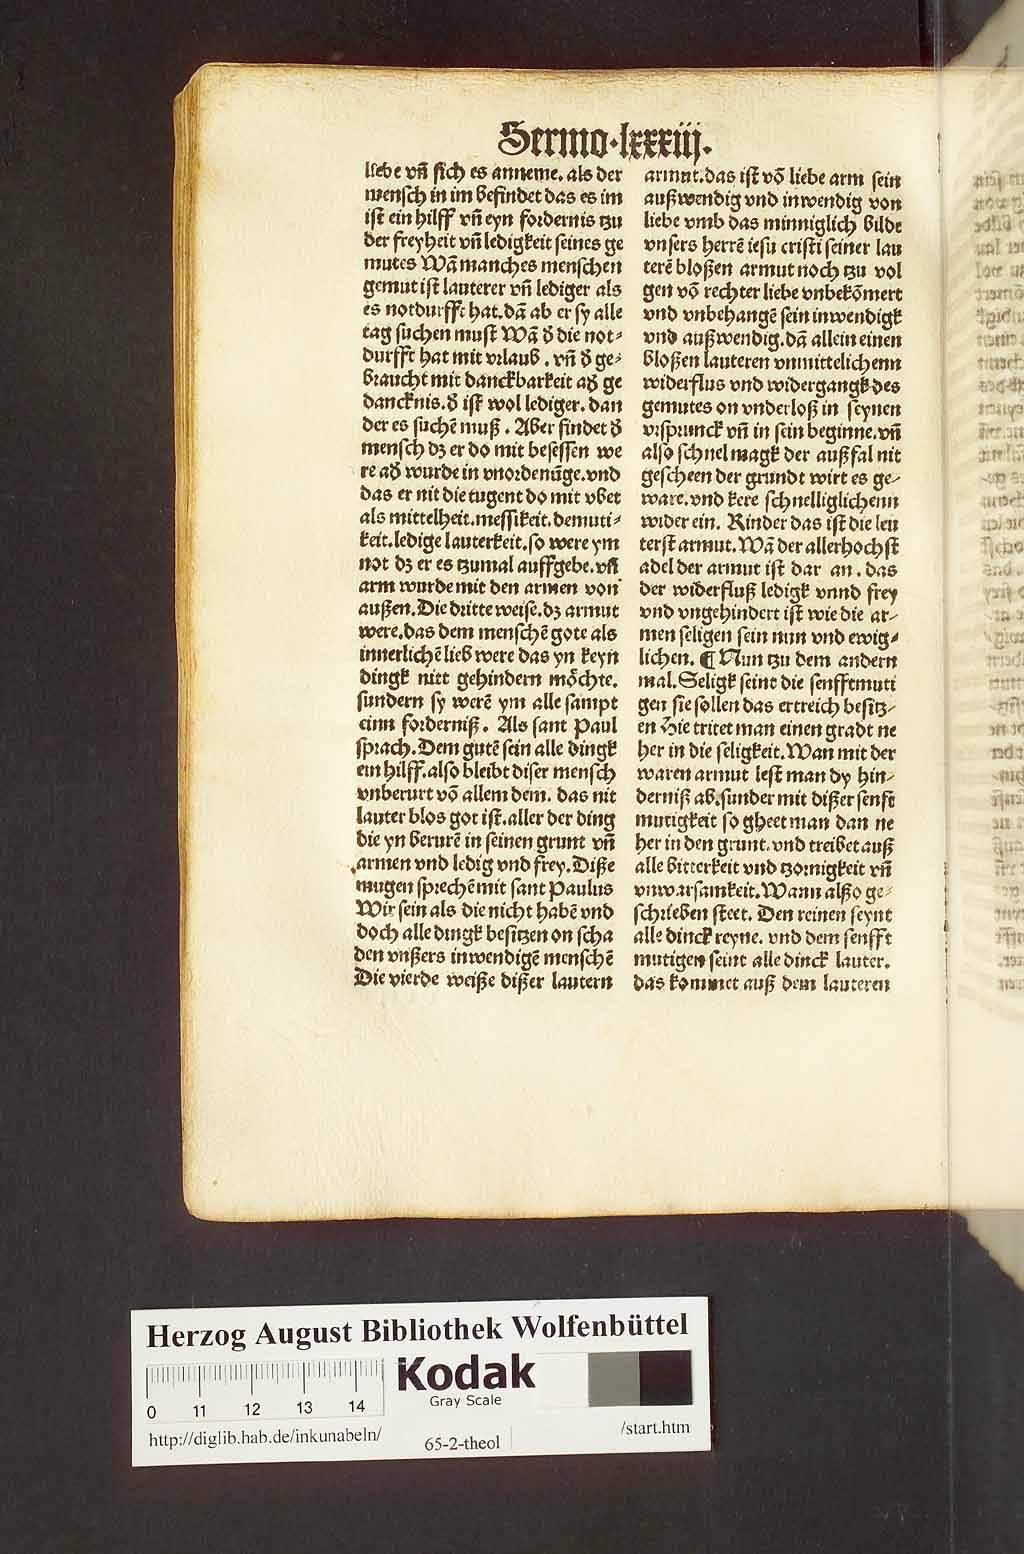 Sermo·lxxxiij.
liebe vñ sich es anneme. als der
mensch in im befindet das es im
ist ein hilff vñ eyn fordernis tzu
der freyheit vñ ledigkeit seines ge
mutes Wā manches menschen
gemut ist lauterer vñ lediger als
es notdurfft hat. dā ab er sy alle
tag suchen must Wā d̕ die not⸗
durfft hat mit vrlaub . vñ d̕ ge⸗
braucht mit danckbarkeit ad̕ ge
dancknis. d̕ ist wol lediger. dan
der es suchē muß . Aber findet d̕
mensch dz er do mit besessen we
re ad̕ wurde in vnordenūge. vnd
das er nit die tugent do mit vbet
als mittelheit. messikeit. demuti⸗
keit. ledige lauterkeit. so were ym
not dz er es tzumal auffgebe. vñ
arm wurde mit den armen von
außen. Die dritte weise. dz armut
were. das dem menschē gote als
innerlichē lieb were das yn keyn
dingk nitt gehindern möchte.
sundern sy werē ym alle sampt
einn forderniß . Als sant Paul
sprach. Dem gutē sein alle dingk
ein hilff. also bleibt diser mensch
vnberurt vō allem dem. das nit
lauter blos got ist. aller der ding
die yn berurē in seinen grunt vñ
armen vnd ledig vnd frey. Diße
mugen sprechē mit sant Paulus
Wir sein als die nicht habē vnd
doch alle dingk besitzen on scha
den vnßers inwendigē menschē
Die vierde weiße dißer lautern
armut. das ist vō liebe arm sein
außwendig vnd inwendig von
liebe vmb das minniglich bilde
vnsers herrē iesu cristi seiner lau
terē bloßen armut noch tzu vol
gen vō rechter liebe vnbekōmert
vnd vnbehangē sein inwendigk
vnd außwendig. dā allein einen
bloßen lauteren vnmittelichenn
widerflus vnd widergangk des
gemutes on vnderloß in seynen
vrsprunck vñ in sein beginne. vñ
also schnel magk der außfal nit
gescheen der grundt wirt es ge⸗
ware. vnd kere schnelliglichenn
wider ein. Kinder das ist die leu
terst armut. Wā der allerhochst
adel der armut ist dar an . das
der widerfluß ledigk vnnd frey
vnd vngehindert ist wie die ar⸗
men seligen sein nun vnd ewig⸗
lichen. ¶ Nun tzu dem andern
mal. Seligk seint die senfftmuti
gen sie sollen das ertreich besitz⸗
en Hie tritet man einen gradt ne
her in die seligkeit. Wan mit der
waren armut lest man dy hin⸗
derniß ab. sunder mit dißer senft
mutigkeit so gheet man dan ne
her in den grunt. vnd treibet auß
alle bitterkeit vnd tzornigkeit vñ
vnwarsamkeit. Wann alßo ge⸗
schrieben steet. Den reinen seynt
alle dinck reyne. vnd dem senfft
mutigen seint alle dinck lauter.
das kommet auß dem lauteren
Herzog August Bibliothek Wolfenbüttel
Kodak
Gray Scale
0 11 12 13 14
http://diglib.hab.de/inkunabeln/
65-2-theol
/start.htm